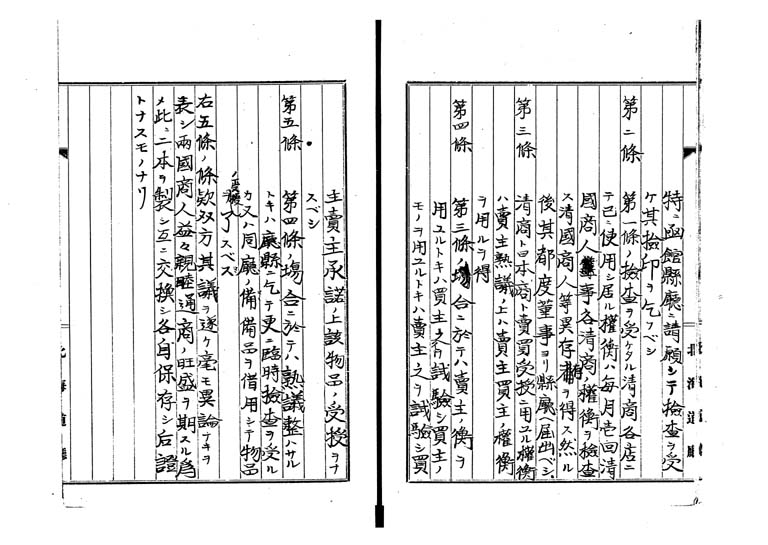 特ニ函館縣廳ニ請願シテ撿査ヲ受
ケ其撿印ヲ乞フベシ
第二條　第一條ノ撿査ヲ受ケタル清商各店ニ
テ已ニ使用シ居ル權衡ハ毎月壱回清
國商人董事各清商ノ權衡ヲ撿査
ス清國商人等異存ヲ得ス然ル
後其都度董事ヨリ縣廳届出ベシ
第三條　清商ト日本商ト賣買受授ニ用ユル權衡
ハ賣主熟議ノ上ハ賣主買主ノ權衡
ヲ用ルヲ得
第四條　第三條ノ場合ニ於テハ賣主ノ衡ヲ
用ユルトキハ買主之ヲ試驗シ買主ノ
モノヲ用ユルトキハ賣主之ヲ試驗シ買
主賣主承諾ノ上該物品ノ受授ヲナ
スベシ
第五條　第四條ノ場合ニ於テハ熟議整ハサル
トキハ廳縣ニ乞テ更ニ臨時撿査ヲ受ル
カ又ハ同廳ノ備備品ヲ借用シテ物品
ノ受授了スベス
右五條ノ條欵双方其議ヲ遂ケ毫モ異論ナキヲ
表シ兩國商人益々親睦通商ノ旺盛ヲ期スル爲
メ此ニ二本ヲ製シ互ニ交換シ各自保存シ后證
トナスモノナリ
北海道廳